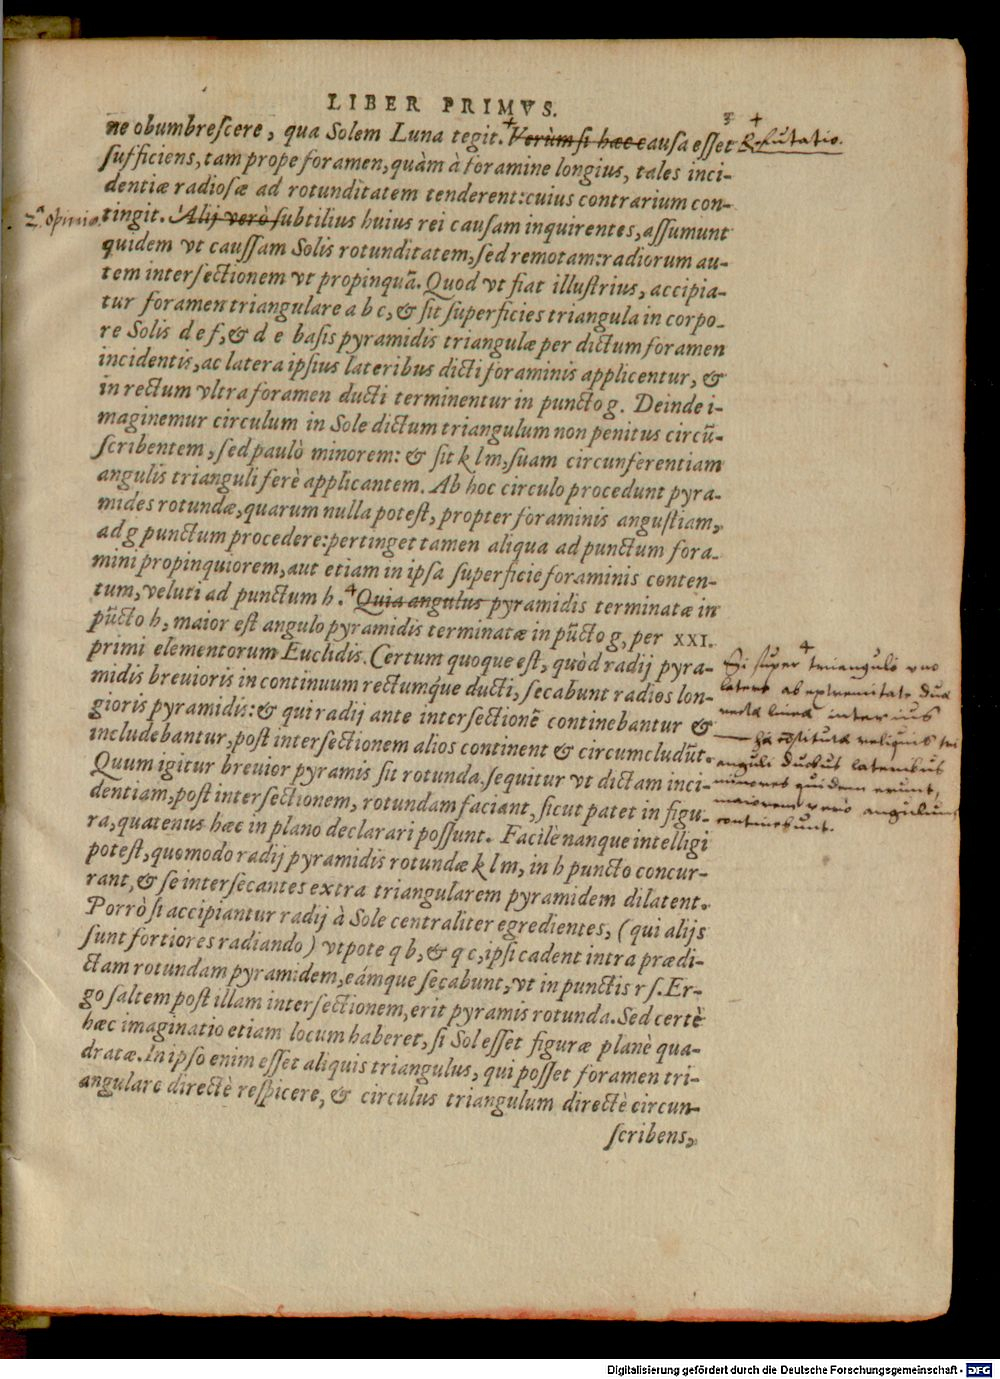 LIBER PRIMVS.
3
ne obumbrescere, qua Solem Luna tegit. + Verùm si hæc causa esset
+ Refutatio.
sufficiens, tam prope foramen, quàm à foramine longius, tales inci-
dentiæ radiosæ ad rotunditatem tenderent: cuius contrarium con-
2.ª opinio.
tingit. Alij verò subtilius huius rei causam inquirentes, assumunt
quidem vt caussam Solis rotunditatem, sed remotam: radiorum au-
tem intersectionem vt propinquã. Quod vt fiat illustrius, accipia-
tur foramen triangulare a b c, & sit superficies triangula in corpo-
re Solis d e f, & d e basis pyramidis triangulæ per dictum foramen
incidentis, ac latera ipsius lateribus dicti foraminis applicentur, &
in rectum vltra foramen ducti terminentur in puncto g. Deinde i-
maginemur circulum in Sole dictum triangulum non penitus circũ-
scribentem, sed paulò minorem: & sit k l m, suam circunferentiam
angulis trianguli ferè applicantem. Ab hoc circulo procedunt pyra-
mides rotundæ, quarum nulla potest, propter foraminis angustiam,
ad g punctum procedere: pertinget tamen aliqua ad punctum fora-
mini propinquiorem, aut etiam in ipsa superficie foraminis conten-
tum, veluti ad punctum h. + Quia angulus pyramidis terminatæ in
pũcto h, maior est angulo pyramidis terminatæ in pũcto g, per XXI.
primi elementorum Euclidis. Certum quoque est, quòd radij pyra-
midis breuioris in continuum rectumq́ue ducti, secabunt radios lon-
gioris pyramidis: & qui radij ante intersectionẽ continebantur &
includebantur, post intersectionem alios continent & circumcludũt.
Quum igitur breuior pyramis sit rotunda, sequitur vt dictam inci-
dentiam, post intersectionem, rotundam faciant, sicut patet in figu-
ra, quatenus hæc in plano declarari possunt. Facilè nanque intelligi
potest, quomodo radij pyramidis rotundæ k l m, in h puncto concur-
rant, & se intersecantes extra triangularem pyramidem dilatent.
Porrò si accipiantur radij à Sole centraliter egredientes, (qui alijs
sunt fortiores radiando) vtpote q b, & q c, ipsi cadent intra prædi-
ctam rotundam pyramidem, eámque secabunt, vt in punctis r s. Er-
go saltem post illam intersectionem, erit pyramis rotunda. Sed certè
hæc imaginatio etiam locum haberet, si Sol esset figuræ planè qua-
dratæ. In ipso enim esset aliquis triangulus, qui posset foramen tri-
angulare directè respicere, & circulus triangulum directè circun-
scribens,
+
Si super trianguli uno
latere ab extremitate duæ
rectæ lineæ interius
hæ constitutæ reliquis tri
anguli duobus lateribus
minores quidem erunt,
maiorem vero angulum
continebunt.
Digitalisierung gefördert durch die Deutsche Forschungsgemeinschaft - DFG